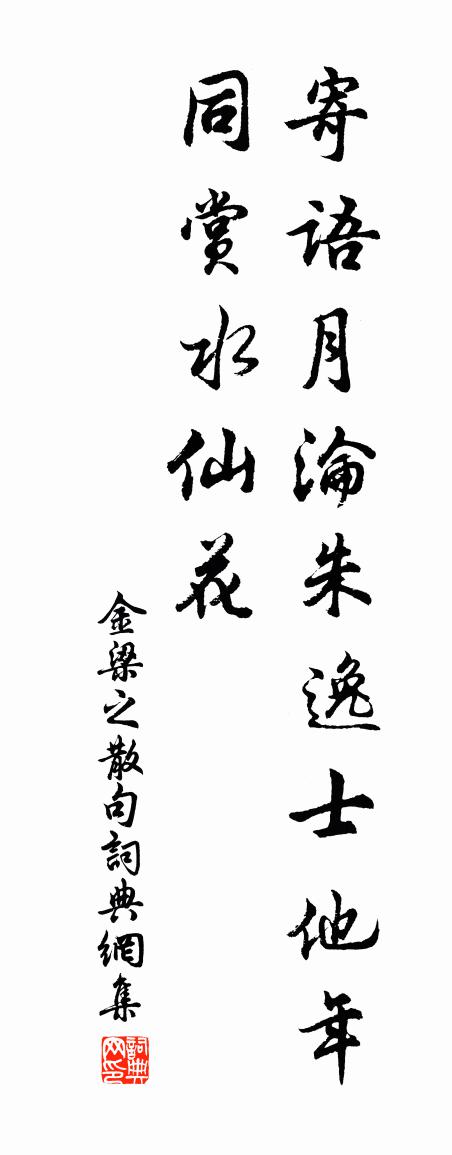 寄語月淪朱逸士他年
同賞水仙花
金梁之散句詞典網集
詞典网印